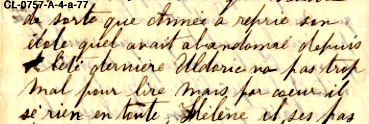 CL-0757-A-4-a-77
de sorte que Année a repris son
école quel avait abandonné depuis
l'été derniere Uldoric na pas trop
mal pour lire mais par coeur il
sé rien en toute, Hélène il ses pas